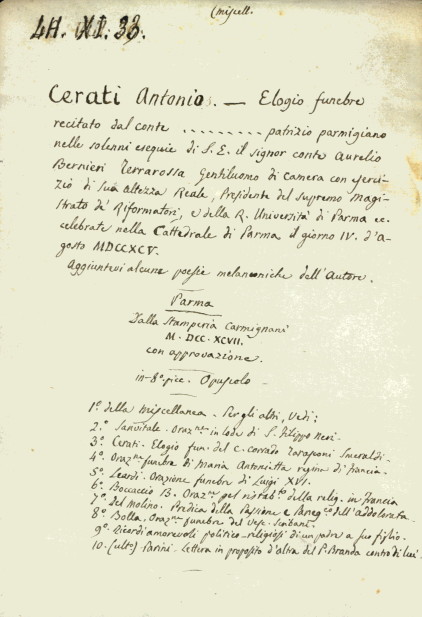 (miscell.
LH. XI. 33.
Cerati Antonio. — Elogio funebre
recitato dal conte ......... patrizio parmigiano
nelle solenni esequie di S. E. il signor conte Aurelio
Bernieri Terrarossa Gentiluomo di Camera con eserci-
zio di Sua altezza Reale, Presidente del supremo Magi-
strato de' Riformatori, e della R. Università di Parma ec
celebrate nella Cattedrale di Parma il giorno IV. d'a-
gosto MDCCXCV.
Aggiuntevi alcune poesie melanconiche dell'Autore.
Parma
Dalla Stamperia Carmignani
M. DCC. XCVII.
con approvazione.
in-8º. picc. Opuscolo —
1º. della miscellanea. Per gli altri, Vedi:
2.º Sanvitale. Oraz.ne in lode di S. Filippo Neri.
3º. Cerati. Elogio fun. del c. Corrado Zarasponi Smeraldi.
4º. Oraz.ne funebre di Maria Antonietta regina di Francia.
5º. Leardi. Orazione funebre di Luigi XVI.
6º. Boccaccio B. Oraz.ne pel ristab.to della relig. in Francia
7º. Del Molino. Predica della Passione e Paneg.co dell'Addolorata.
8º. Bolla. Oraz.ne funebre del Vesc. Scribani.
9º. Ricordi amorevoli politico-religiosi di un padre a suo figlio.
10. (ult.) Parini. Lettera in proposito d'altra del P. Branda contro di lui.